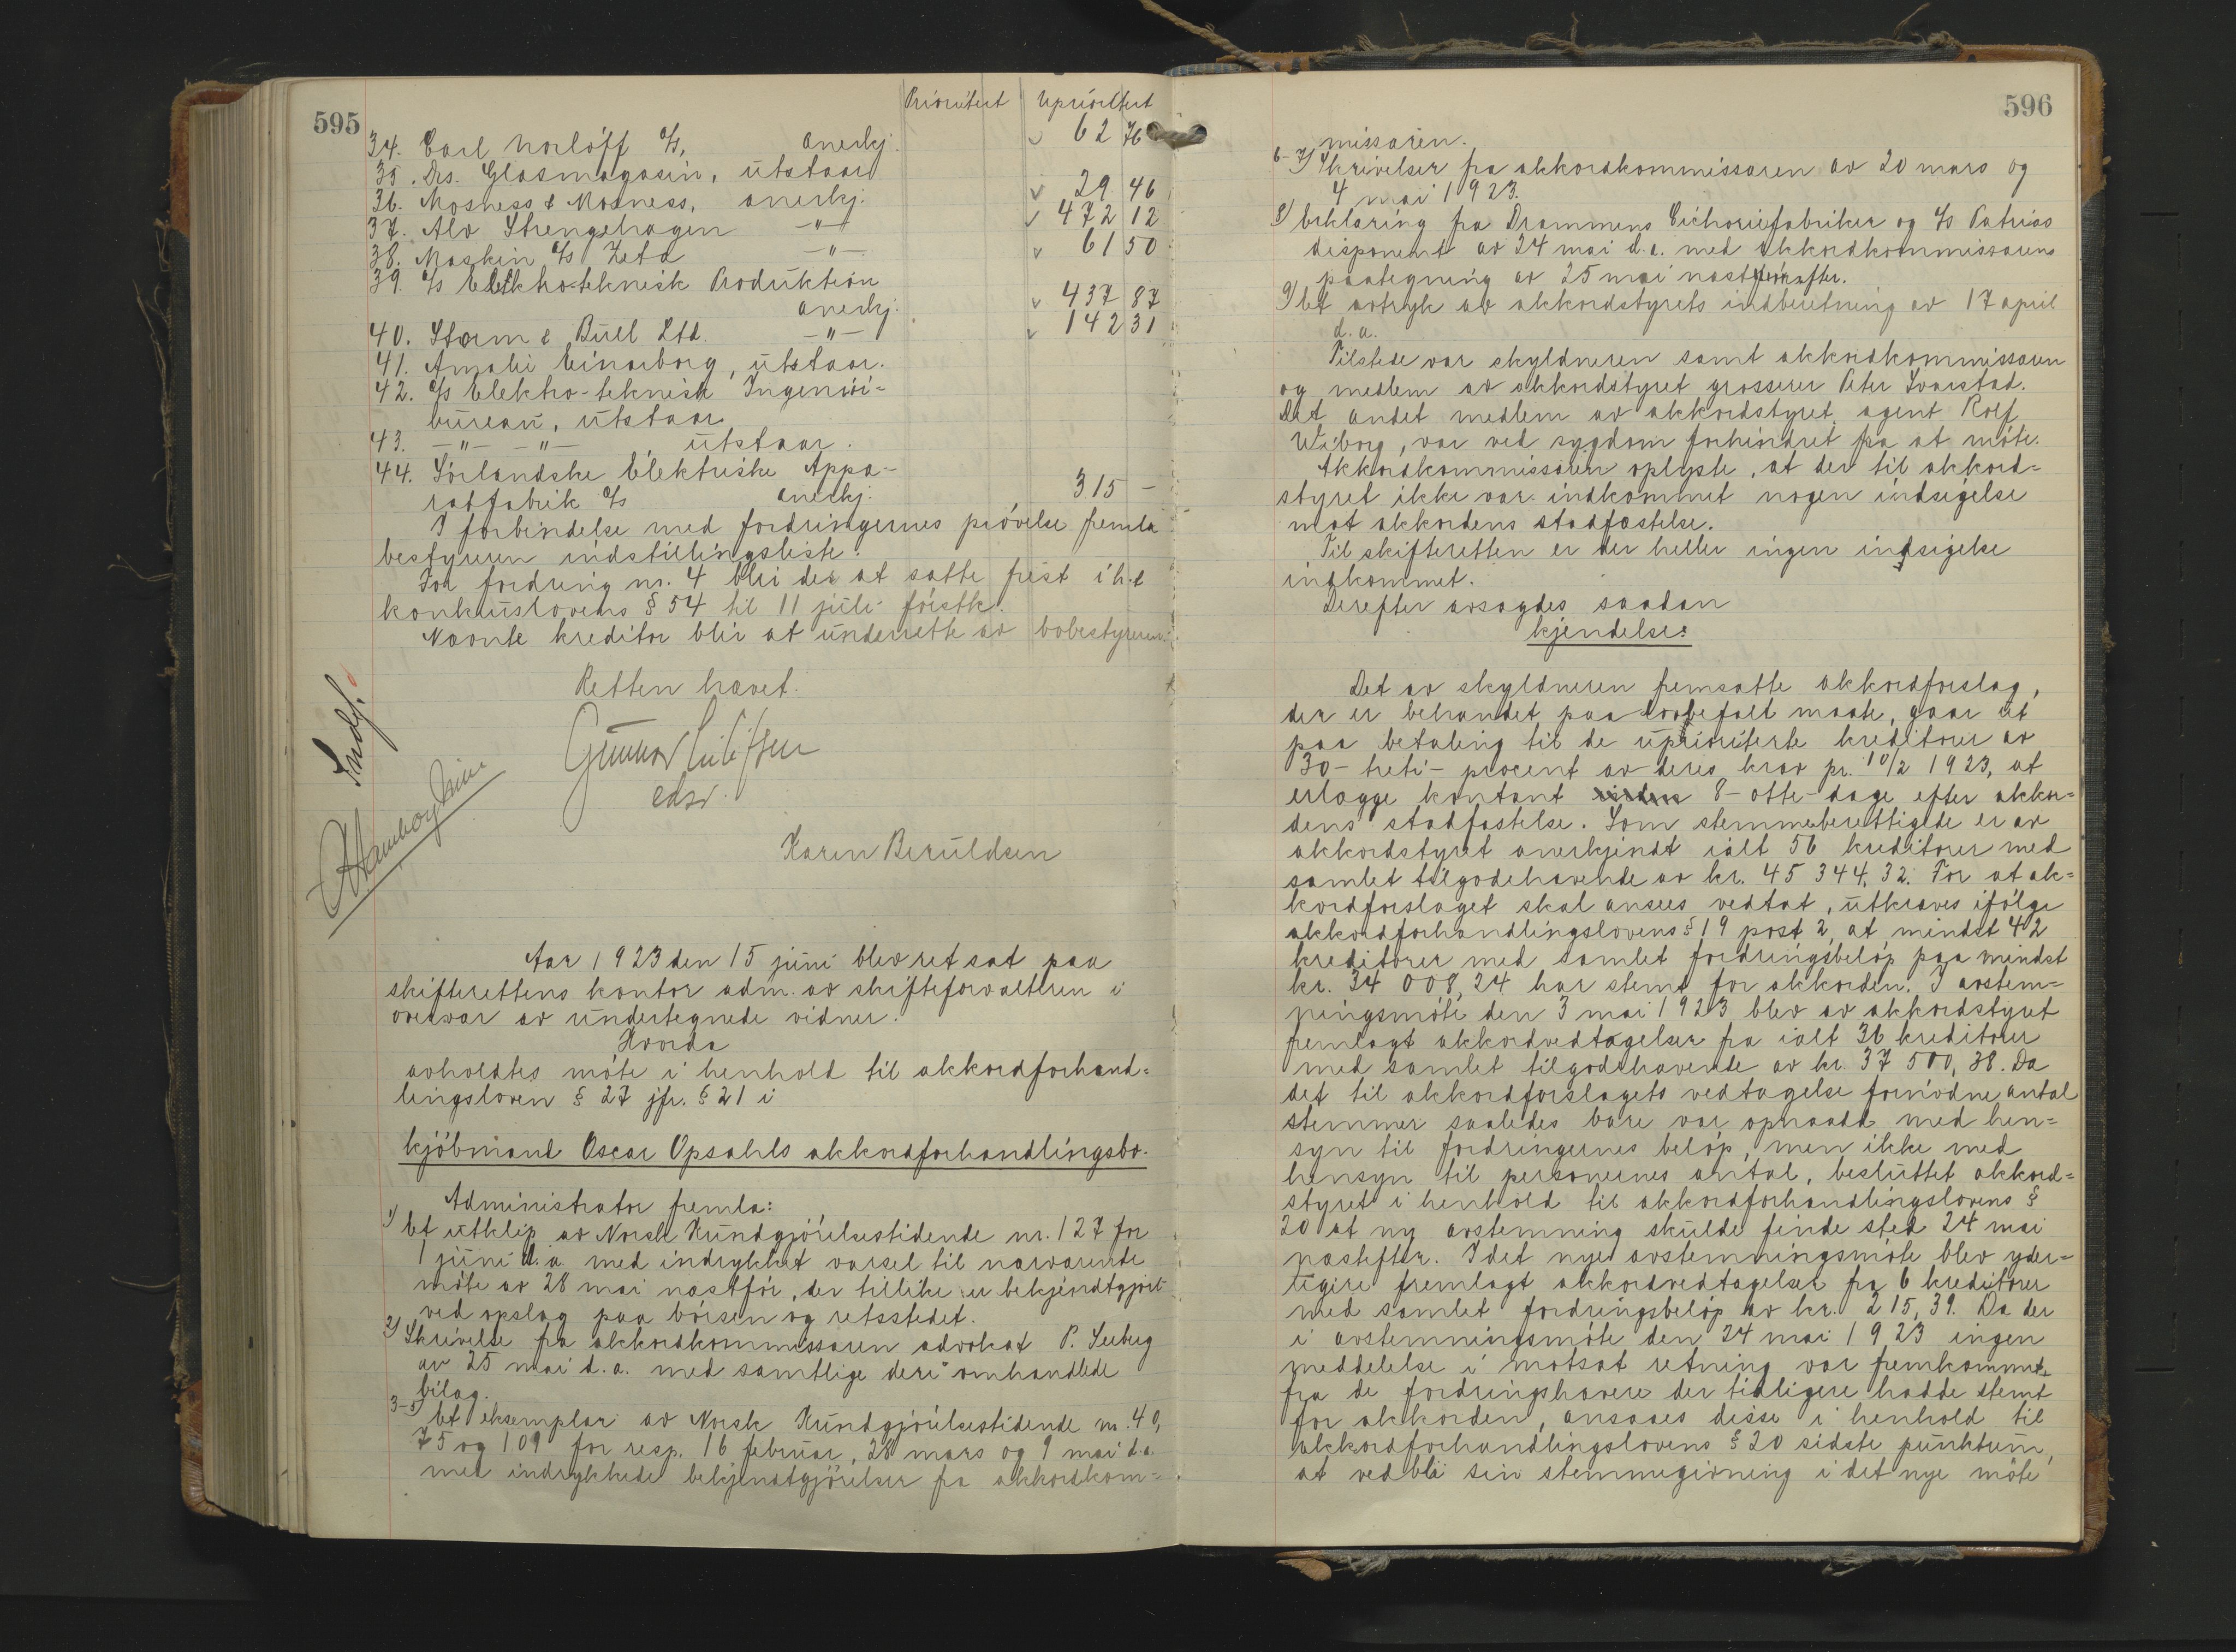 595
Prioritert Uprioritert
34. Carl Norløff A/S, anerkj. 62 76
35. Drs. Glasmagasin, utstaar
36. Mosness & Mosness, anerkj. 29 46
37. Alv Strengehagen -"- 472 12
38. Maskin A/S Zeta -"- 61 50
39. A/S Elektro-teknisk Produktion
anerkj. 437 87
40. Storm & Bull Ltd. -"- 142 31
41. Amalie Einarborg, utstaar.
42. A/S Elektro-teknisk Ingeniör-
bureau, utstaar
43. -"- -"- utstaar.
44. Sörlandske Elektriske Appa-
ratfabrik A/S anerkj. 315 -
I forbindelse med fordringernes prövelse fremla
bestyreren indstillingsliste.
For fordring nr. 4 blir der at sætte frist i h.t
konkurslovens § 54 til 11 juli förstk.
Nævnte kreditor blir at underrette av bobestyreren.
Retten hævet.
Gunnar
edsv.
Karen Beruldsen
Indf.
Aar 1923 den 15 juni blev ret sat paa
skifterettens kontor adm. av skifteforvalteren i
overvær av undertegnede vidner.
Hvorda
avholdtes möte i henhold til akkordforhand=
lingsloven § 27 jfr. § 21 i
kjöbmand Oscar Opsahls akkordforhandlingsbo.
Administrator fremla:
1) Et utklip av Norsk Kundgjörelsestidende nr. 127 for
1 juni d.a. med indrykket varsel til nærværende
möte av 28 mai næstför, der tillike er bekjendtgjort
ved opslag paa börsen og retsstedet.
2) Skrivelse fra akkordkommissæren advokat P. Seeberg
av 25 mai d.a. med samtlige deri omhandlede
bilag.
3-5) Et eksemplar av Norsk Kundgjörelsestidende nr. 40,
75 og 109 for resp. 16 februar, 28 mars og 9 mai d.a.
med indrykkede bekjendtgjörelser fra akkordkom=
596
missæren.
6-7) Skrivelser fra akkordkommissæren av 20 mars og
4 mai 1923.
8) Erklæring fra Drammens Cichoriefabriker og A/S Patrias
disponent av 24 mai d.a. med akkordkommissærens
paategning av 25 mai næstderefter.
9) Et avtryk av akkordstyrets indberetning av 17 april
d.a.
Tilstede var skyldneren samt akkordkommissæren
og medlem av akkordstyret grosserer Peter Svarstad.
Det andet medlem av akkordstyret, agent Rolf
Wiborg, var ved sygdom forhindret fra at möte.
Akkordkommissæren oplyste, at der til akkord=
styret ikke var indkommet nogen indsigelse
mot akkordens stadfæstelse.
Til skifteretten er der heller ingen indsigelse
indkommet.
Derefter avsagdes saadan
kjendelse:
Det av skyldneren fremsatte akkordforslag,
der er behandlet paa lovbefalt maate, gaar ut
paa betaling til de uprioriterte kreditorer av
30 - treti - procent av deres krav pr. 10/2 1923, at
erlægge kontant 8 - otte - dage efter akkor=
dens stadfæstelse. Som stemmeberettigede er av
akkordstyret anerkjendt ialt 56 kreditorer med
samlet tilgodehavende av kr. 45 344,32. For at ak=
kordforslaget skal ansees vedtat, utkræves ifölge
akkordforhandlingslovens § 19 post 2, at mindst 42
kreditorer med samlet fordringsbelöp paa mindst
kr. 34 008,24 har stemt for akkorden. I avstem=
ningsmöte den 3 mai 1923 blev av akkordstyret
fremlagt akkordvedtagelser fra ialt 36 kreditorer
med samlet tilgodehavende av kr. 37 500,38. Da
det til akkordforslagets vedtagelse fornödne antal
stemmer saaledes bare var opnaadd med hen=
syn til fordringernes belöp, men ikke med
hensyn til personernes antal, besluttet akkord=
styret i henhold til akkordforhandlingslovens §
20 at ny avstemning skulde finde sted 24 mai
næstefter. I det nye avstemningsmöte blev yder=
ligere fremlagt akkordvedtagelser fra 6 kreditorer
med samlet fordringsbelöp av kr. 215,39. Da der
i avstemningsmöte den 24 mai 1923 ingen
meddelelse i motsat retning var fremkommet
fra de fordringshavere der tidligere hadde stemt
for akkorden, ansaaes disse i henhold til
akkordforhandlingslovens § 20 sidste punktum,
at ved bli sin stemmegivning i det nye möte